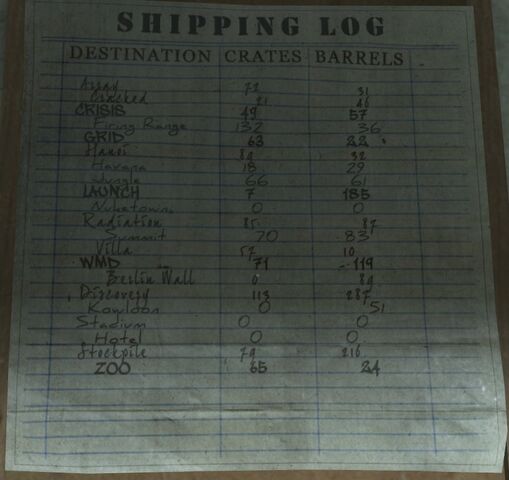 SHIPPING LOG
DESTINATION CRATES BARRELS
Array 72 31
Cracked 21 46
CRISIS 49 57
Firing Range 132 36
GRID 63 22
Hanoi 89 32
Havana 18 29
Jungle 66 61
LAUNCH 7 185
Nuketown 0 0
Radiation 85 87
Summit 70 83
Villa 57 10
WMD 71 119
Berlin Wall 0 89
Discovery 113 287
Kowloon 0 51
Stadium 0 0
Hotel 0 0
Stockpile 79 216
ZOO 65 24